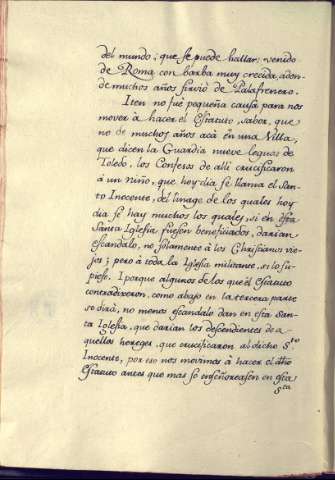 del mundo, que se puede hallar: venido
de Roma con barba muy crecida, adon-
de muchos años sirvió de Palafrenero.
Iten no fué pequeña causa para nos
mover à hacer el Estatuto, saber, que
no de muchos años acà en una Villa,
que dicen la Guardia nueve leguas de
Toledo, los Confesos de alli crucificaron
à un Niño, que hoy dia se llama el San-
to Inocente, del linage de los quales hoy
dia se hay muchos los quales, si en esta
Santa Iglesia fuesen beneficiados, darian
escandalo, no solamente à los Christianos vie-
jos; pero à toda la Iglesia militante, si lo su-
piese. I porque algunos de los que èl Estatuto
contradixeron, como abajo en la tercera parte
se dirà, no menos escandalo dan en esta San-
ta Iglesia, que darian los descendientes de a-
quellos hereges, que crucificaron al dicho Sto
Inocente, por eso nos movimos à hacer el dho
Estatuto antes que mas se enseñoreasen en esta
Sta